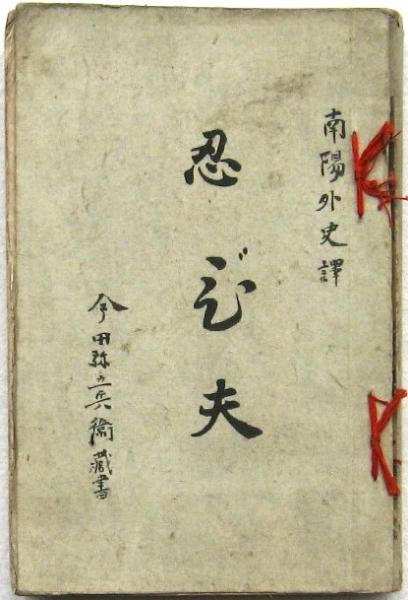 南陽外史譯
忍び夫
今田弥五兵衞藏書